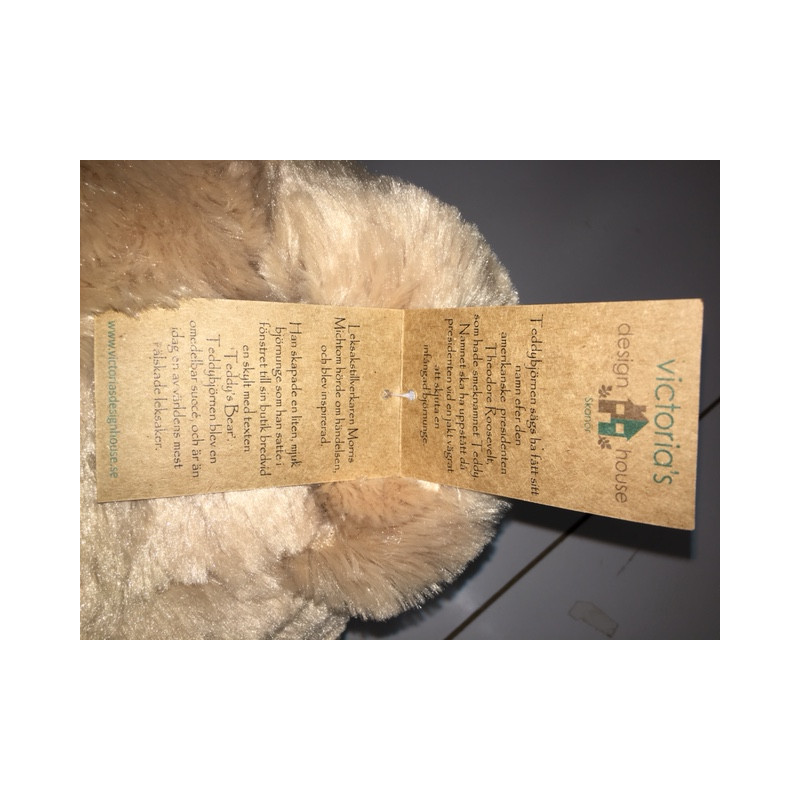 victoria's
design house
Skanör
Teddybjörnen sägs ha fått sitt
namn efer den
amerikanske presidenten
Theodore Roosevelt,
som hade smeknamnet Teddy.
Namnet ska ha uppstått då
presidenten vid en jakt vägrat
att skjuta en
infångad björnunge.
Leksakstillverkaren Morris
Michtom hörde om händelsen,
och blev inspirerad.
Han skapade en liten, mjuk
björnunge som han satte i
fönstret till sin butik bredvid
en skylt med texten
'Teddy's Bear'.
Teddybjörnen blev en
omedelbar succé, och är än
idag en av världens mest
älskade leksaker.
www.victoriasdesignhouse.se